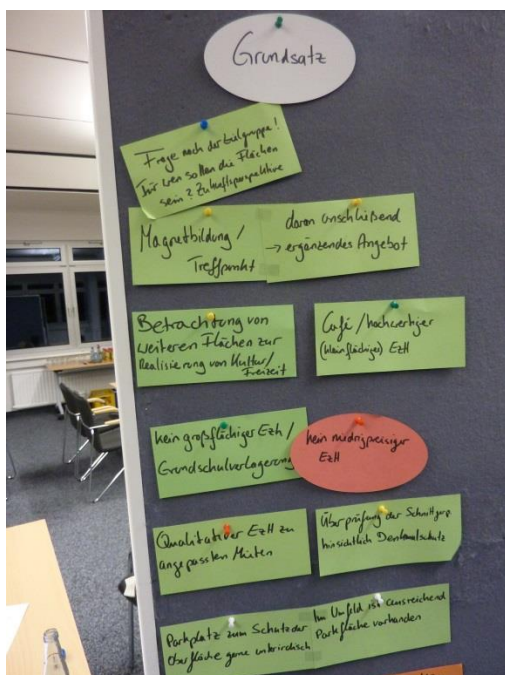 Grundsatz
Frage nach der Zielgruppe!
Für wen sollen die Flächen
sein? Zukunftsperspektive
Magnetbildung /
Treffpunkt
daran anschließend
→ ergänzendes Angebot
Betrachtung von
weiteren Flächen zur
Realisierung von Kultur/
Freizeit
Café / hochwertiger
(kleinflächiger) EzH
kein großflächiger Ezh /
Grundschulverlagerung
kein niedrigpreisiger
EzH
Qualitativer EzH zu
angepassten Mieten
Überprüfung der
hinsichtlich Denkmalschutz
Parkplatz zum Schutz der
Oberfläche gerne unterirdisch
Im Umfeld ist ausreichend
Parkfläche vorhanden